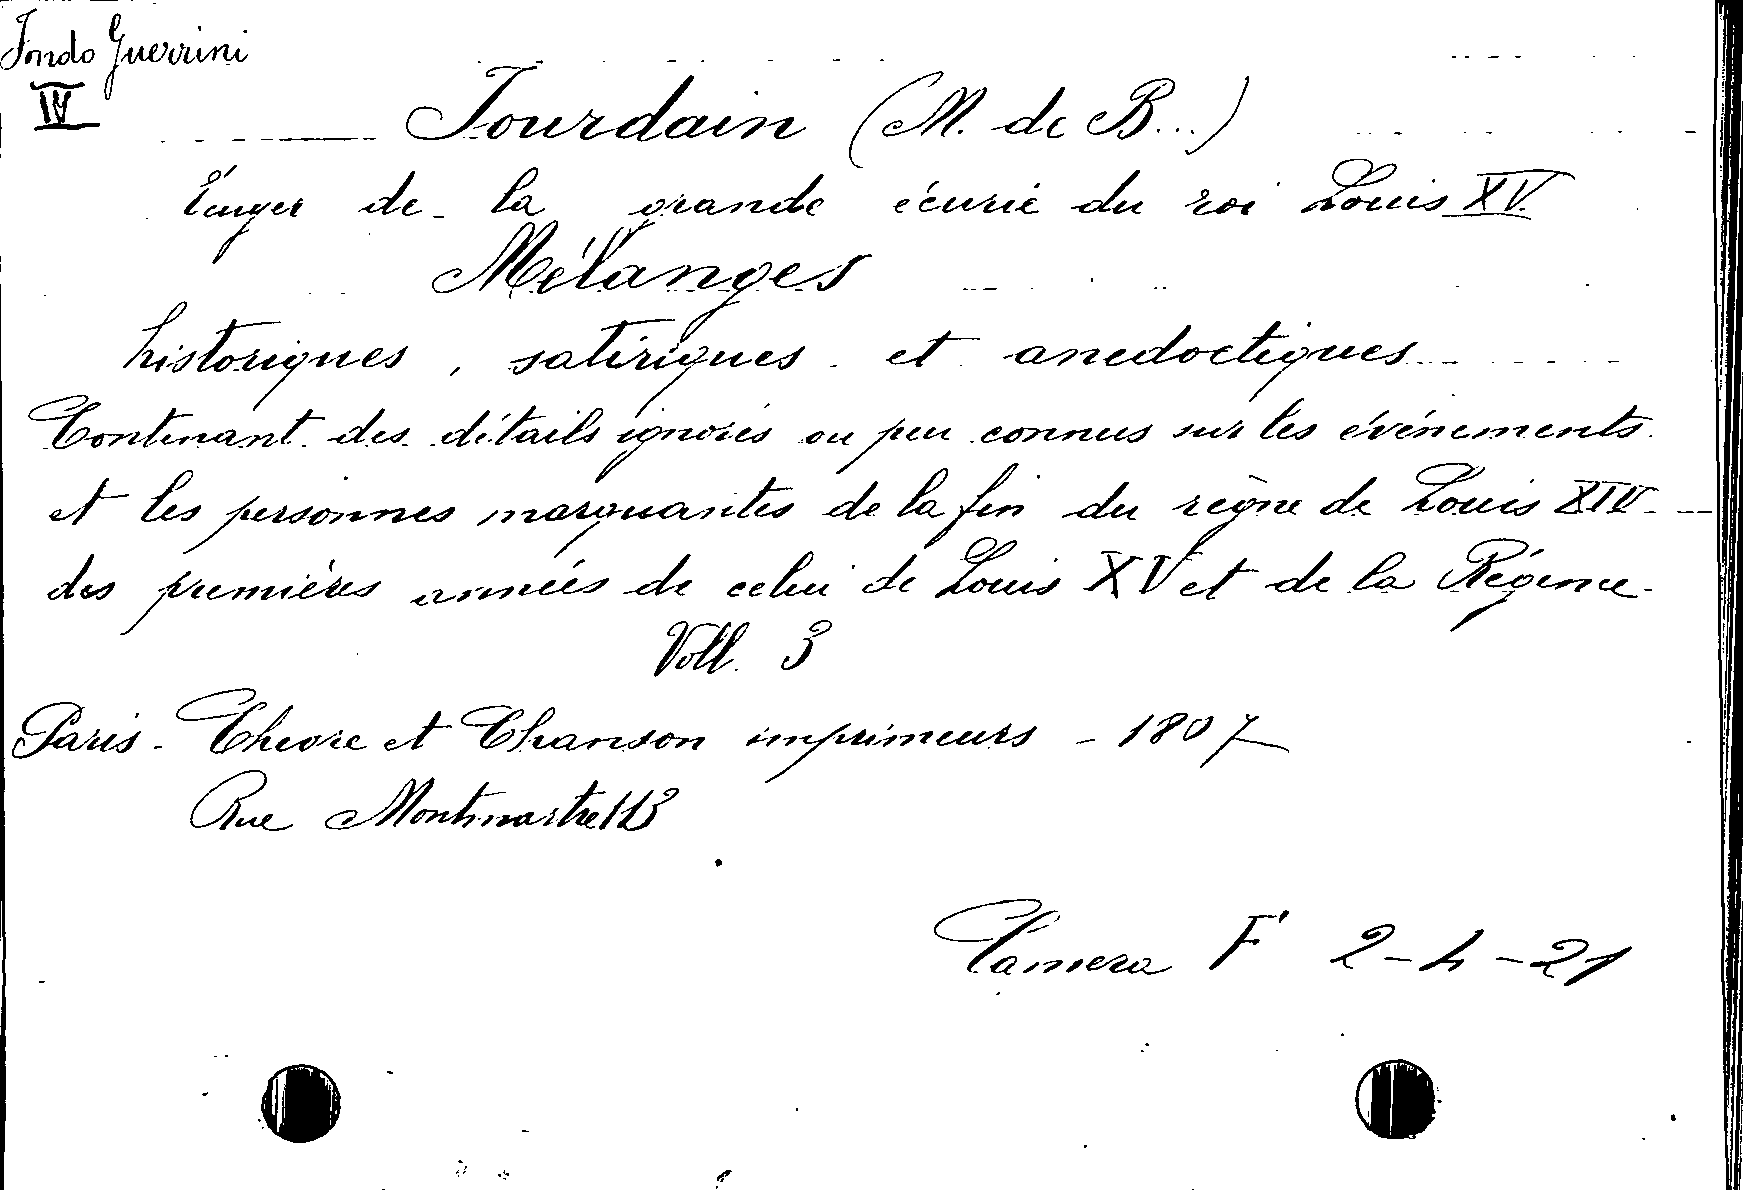 Fondo Guerrini
IV
Jourdain (M. de B...)
de la grande écurie du roi Louis XV.
Mélanges
historiques, satiriques et anedoctiques
Contenant des détails ignorés ou peu connus sur les événements
et les personnes marquantes de la fin du règne de Louis XIV
des premières années de celui de Louis XV et de la
Voll. 3
Paris - et Chanson imprimeurs - 1807
Rue Montmartre 113
Camera F 2-4-21